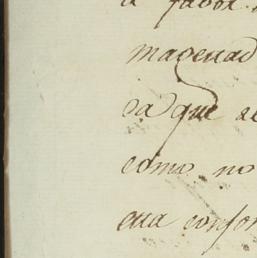 a favor
magestad
da que se
como no
esta confor